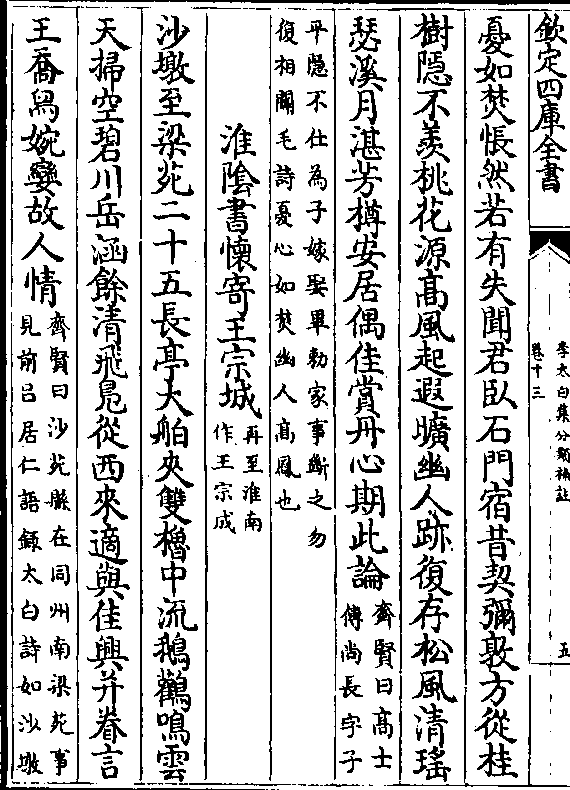 欽定四庫全書
李太白集分類補註
卷十三
五
憂如焚悵然若有失聞君臥石門宿昔契彌敦方從桂
樹隱不羨桃花源高風起遐曠幽人跡復存松風清瑤
瑟溪月湛芳樽安居偶佳賞丹心期此論
齊賢曰高士
傳尚長字子
平隱不仕為子嫁娶畢勅家事斷之勿
復相關毛詩憂心如焚幽人高鳳也
淮陰書懷寄王宗城
再至淮南
作王宗成
沙墩至梁苑二十五長亭大舶夾雙櫓中流鵝鸛鳴雲
天掃空碧川岳涵餘清飛鳧從西來適與佳興并眷言
王喬舄婉孌故人情
齊賢曰沙苑縣在同州南梁苑事
見前吕居仁語録太白詩如沙墩